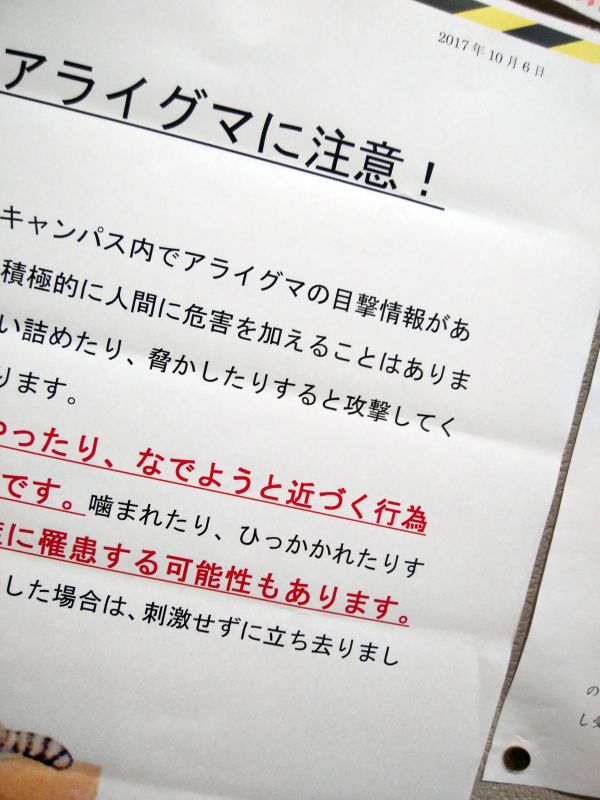 2017年10月6日
アライグマに注意！
キャンパス内でアライグマの目撃情報があ
積極的に人間に危害を加えることはありま
い詰めたり、脅かしたりすると攻撃してく
ります。
やったり、なでようと近づく行為
です。噛まれたり、ひっかかれたりす
に罹患する可能性もあります。
した場合は、刺激せずに立ち去りまし
の
し受